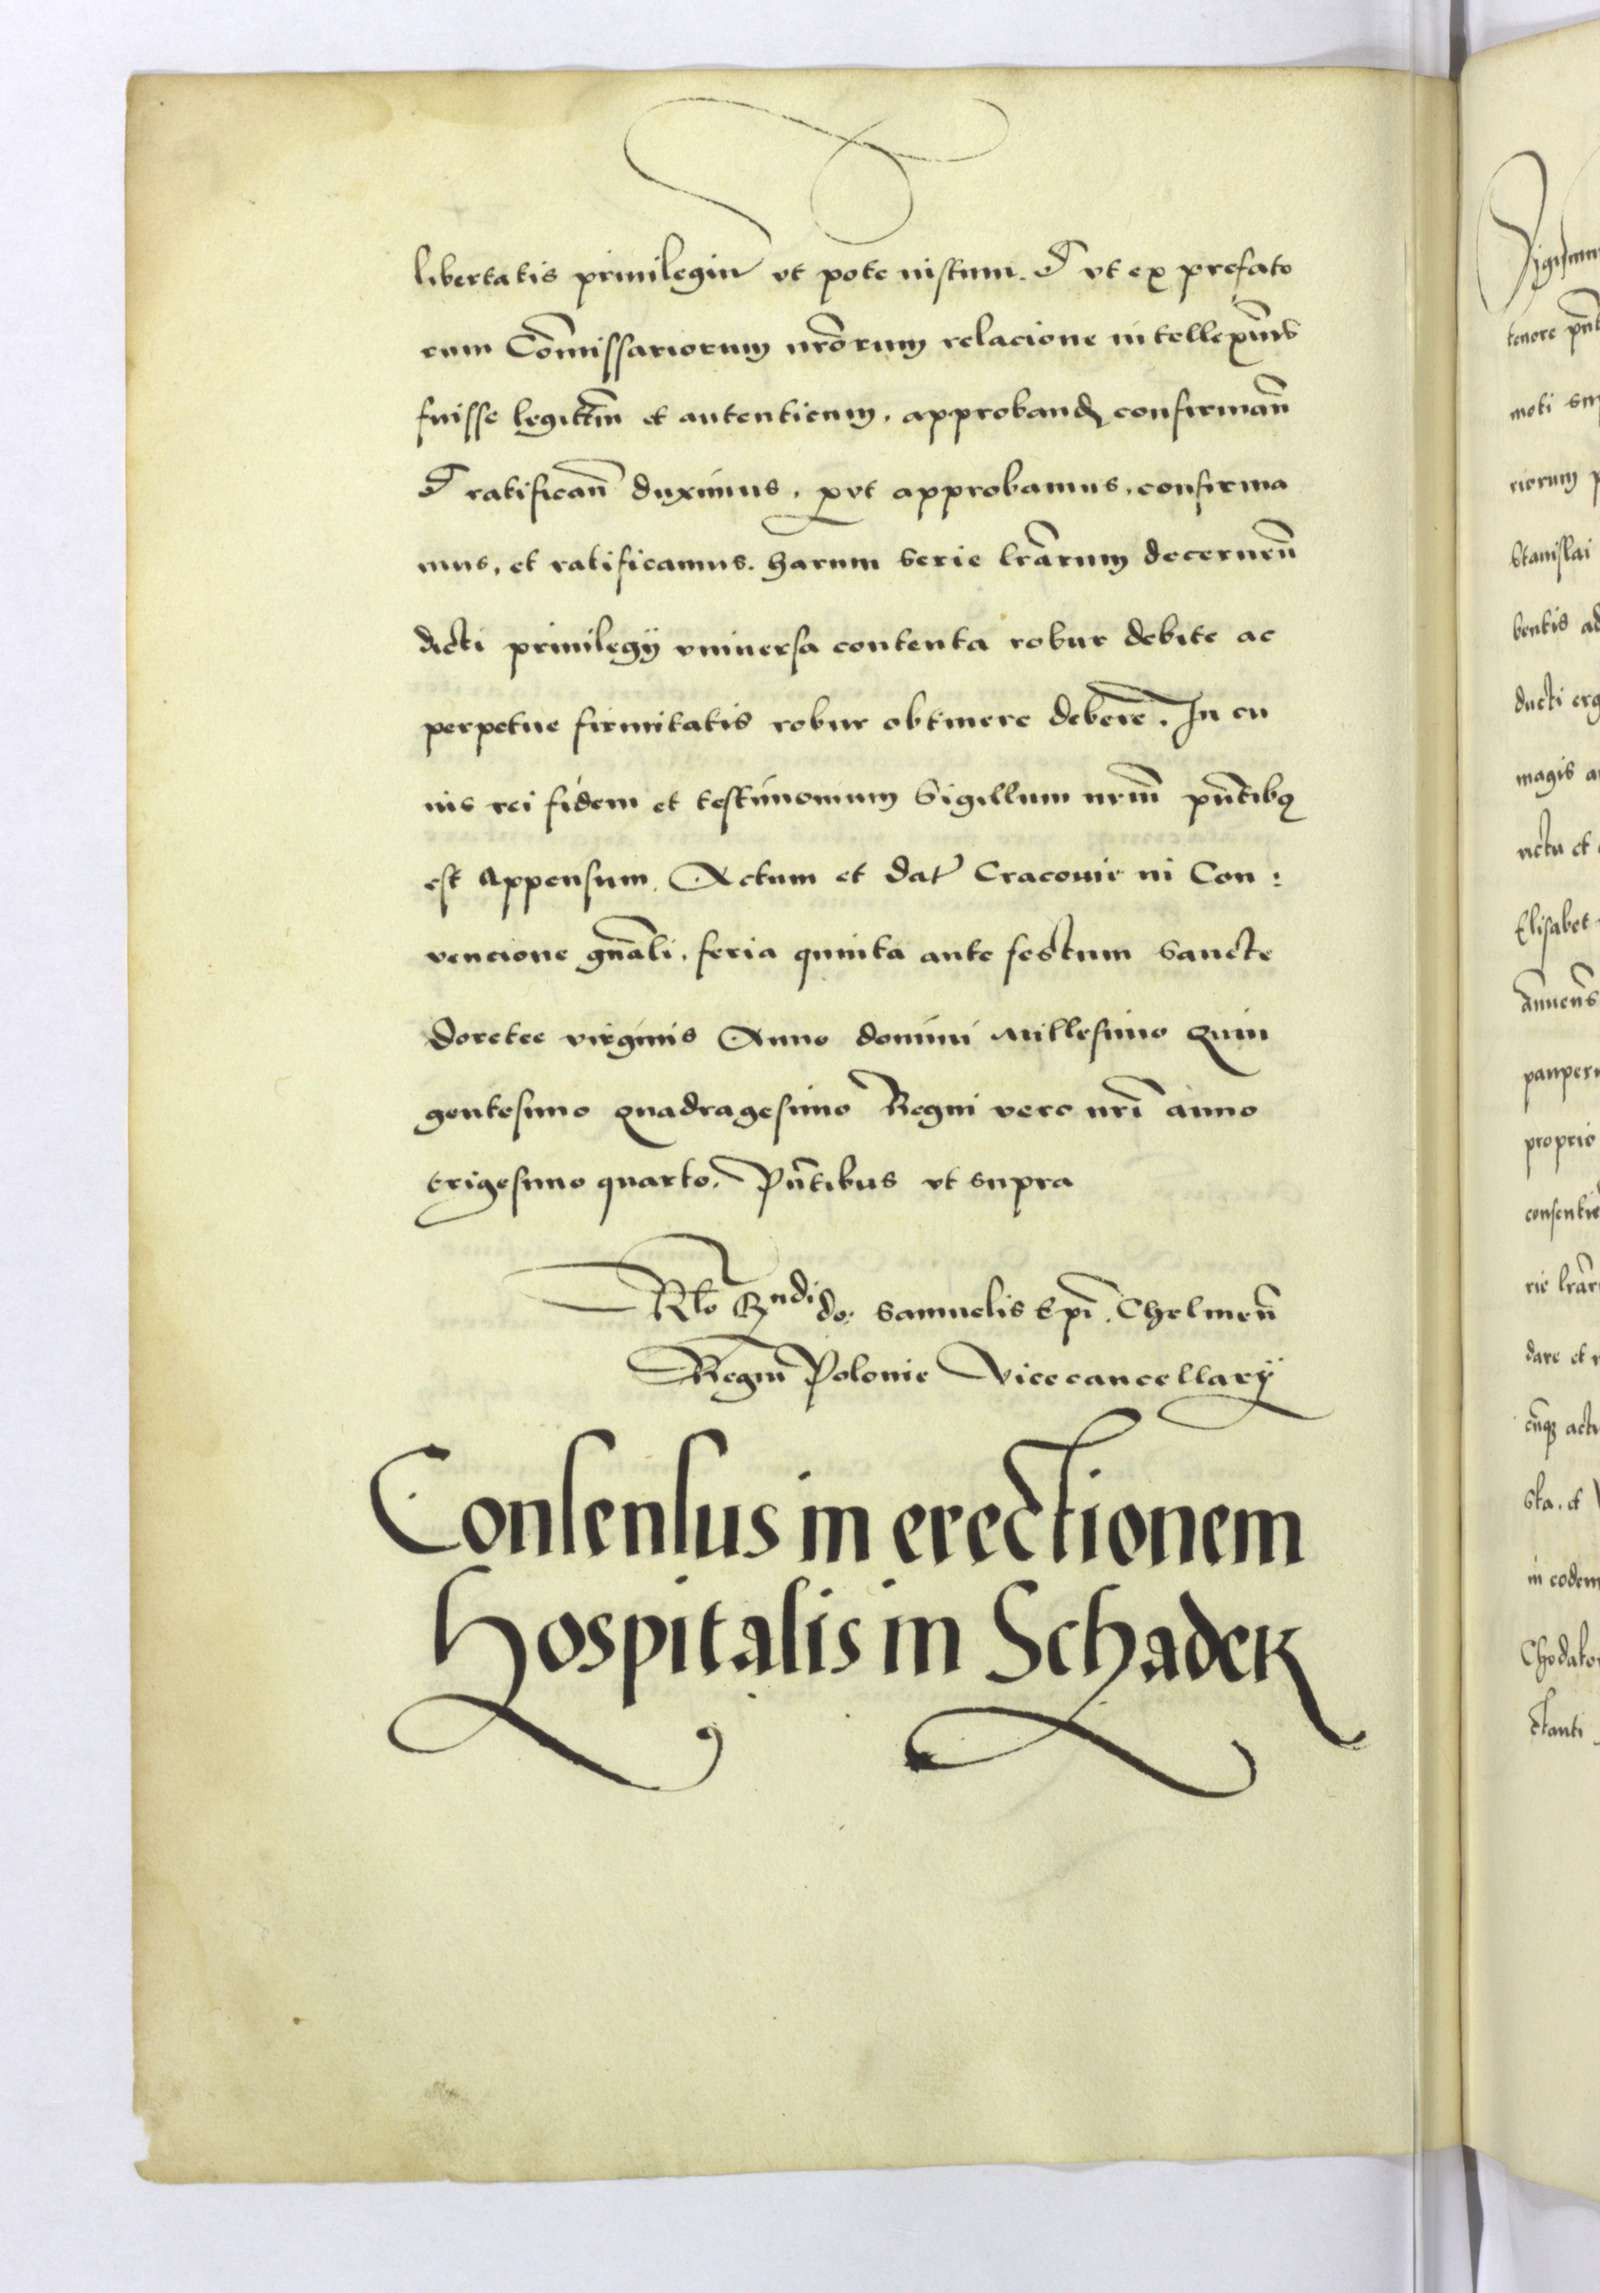 libertatis priuilegiũ vt pote iustum. Et vt ex prefato
rum Cõmissariorum nrõrum relacione intellexim̃us
fuisse legittim̃ et autenticum, approband̃ confirman̄
Et ratifican̄ duximus, prvt approbamus, confirma
mus, et ratificamus. harum serie lrãrum decernen̄
dicti priuilegij vniuersa contenta robur debite ac
perpetue firmitatis robur obtinere debere. In cu
ius rei fidem et testimonium Sigillum nrm̃ pñtibꝫ
est Appensum. Actum et dat Cracouie in Con:
uencione gñali, feria quinta ante festum sancte
dorotee virginis Anno domini Millesimo Quin
gentesimo quadragesimo Regni vero nrĩ anno
trigesimo quarto. Pñtibus vt supra
Rlo Rndi do: Samuelis Epĩ. Chelmen̄
Regni Polonie Vicecancellarij
Consensus in erectionem
Hospitalis in Schadek
tenore
moti
riorum
Stanislai
bentis
ducti
magis
Elisabet
proprio
dare et
in eodem